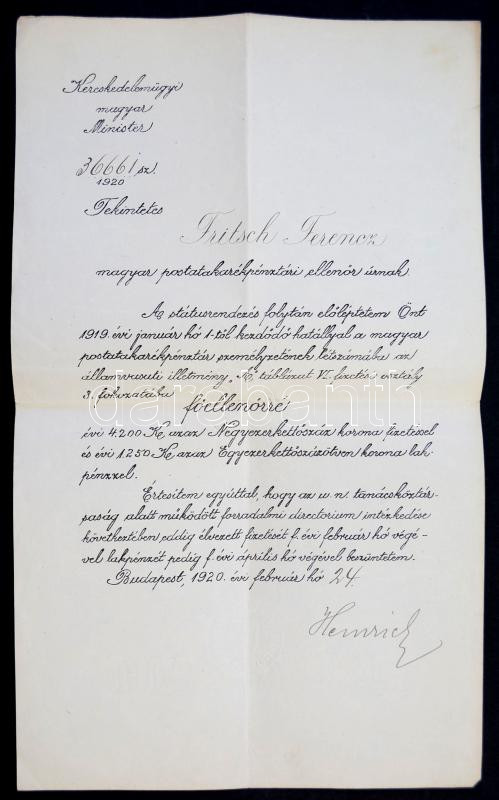 Kereskedelemügyi
magyar
Minister
36661 sz.
1920
Tekintetes
Fritsch Ferencz
magyar postatakarékpénztári ellenőr úrnak.
A státusrendezés folytán előléptetem Önt
1919. évi január hó 1-től kezdődő hatállyal a magyar
postatakarékpénztár személyzetének létszámába az
államvasuti illetmény „A" táblázat VI. fizetési osztály
3. fokozatába
főellenőrré
évi 4.200 K, azaz Négyezerkettőszáz korona fizetéssel
és évi 1.250 K, azaz Egyezerkettőszázötven korona lak-
pénzzel.
Értesitem egyúttal, hogy az u. n. tanácsköztár-
saság alatt működött forradalmi directorium intézkedése
következtében eddig élvezett fizetését f. évi február hó végé-
vel lakpénzét pedig f. évi április hó végével beszüntetem.
Budapest, 1920. évi február hó 24.
Heinrich
darabanth